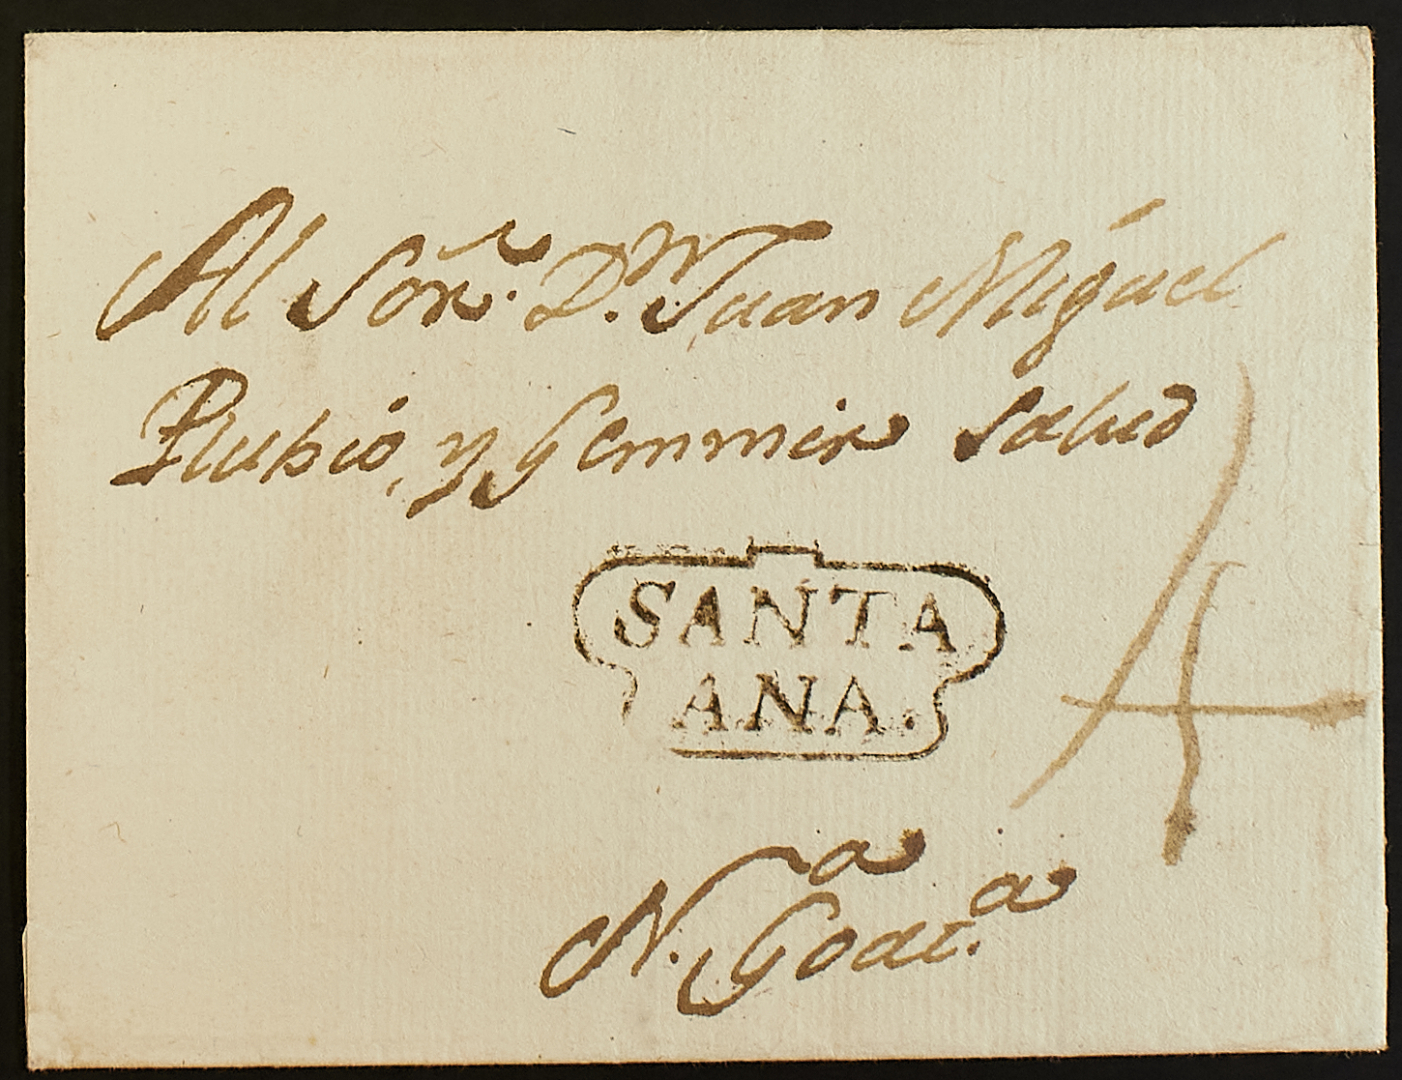 Al Sōr. D.n Juan Miguel
Rubio, y Gemmir Salud
SANTA
ANA.
4
N.a Goat.a